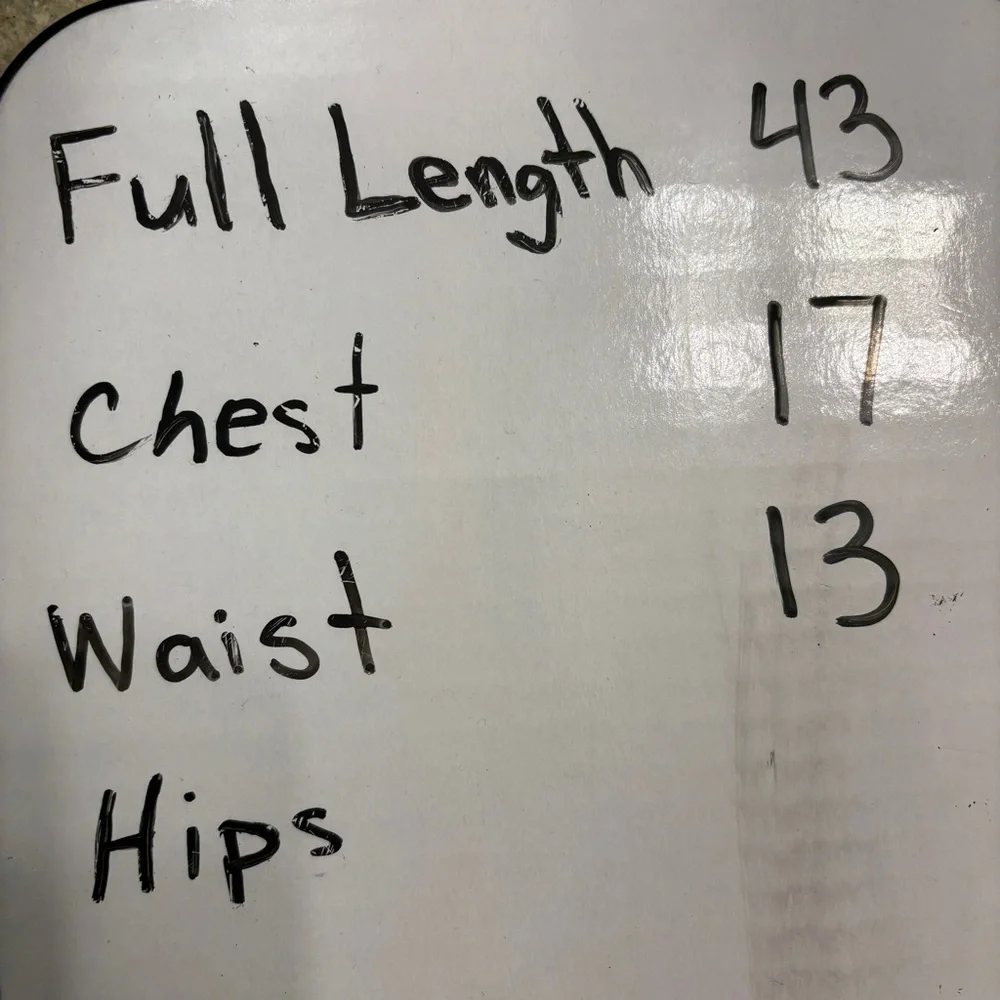 Full Length 43
Chest 17
Waist 13
Hips